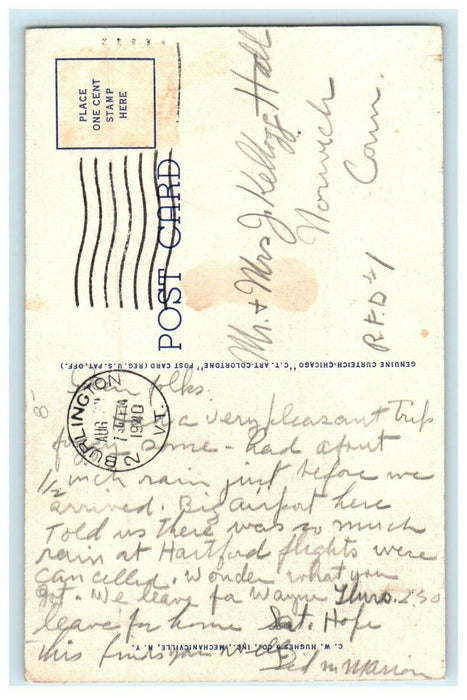 PLACE
ONE CENT
STAMP
HERE
POST CARD
Mr. + Mrs J. Kellogg Hall
Norwich
Conn.
R.F.D #1
GENUINE CURTEICH-CHICAGO "C.T. ART-COLORTONE" POST CARD (REG. U.S. PAT. OFF.)
BURLINGTON
AUG
1940
VT.
2
8-
folks.
a very pleasant trip
some - had about
1/2 inch rain just before we
arrived. Big airport here
Told us there was so much
rain at Hartford flights were
cancelled. Wonder what you
got. We leave for Wayne Thurs. 2:30
leave for home Sat. Hope
this finds you well
Ted n Marion
C. W. HUGHES & CO., INC., MECHANICVILLE, N. Y.